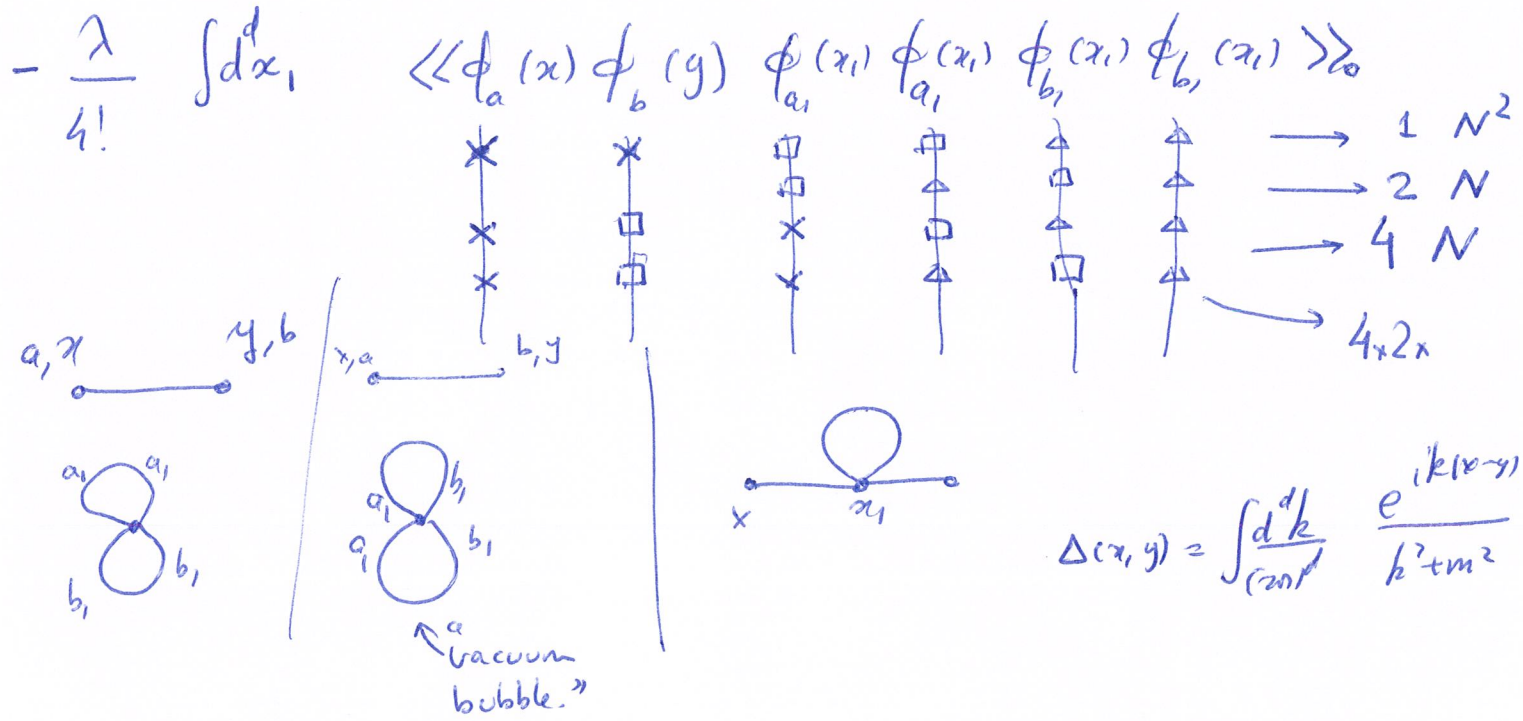 - λ/4! ∫d^d x₁ <<ϕ_a (x) ϕ_b (y) ϕ_a₁ (x₁) ϕ_a₁ (x₁) ϕ_b₁ (x₁) ϕ_b₁ (x₁) >>₀
→ 1 N²
→ 2 N
→ 4 N
→ 4x2x
a, x y, b
x, a b, y
a₁ a₁
b₁ b₁
a₁ b₁
a₁ b₁
"vacuum
bubble."
x x₁
Δ(x, y) = ∫ d^d k/(2π)^d e^{ik(x-y)}/k²+m²